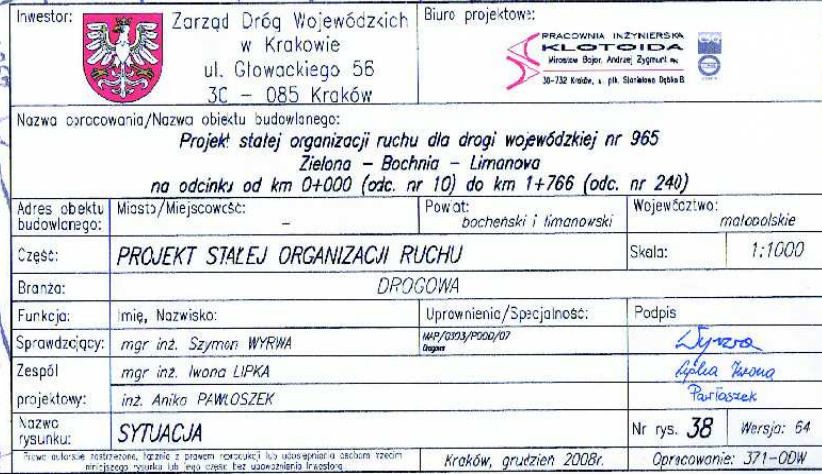 Inwestor:
Zarząd Dróg Wojewódzkich
w Krakowie
ul. Głowackiego 56
30 - 085 Kraków
Biuro projektowe:
PRACOWNIA INŻYNIERSKA
KLOTOIDA
Mirosław Bajor, Andrzej Zygmunt
30-732 Kraków, Stanisława Dąbka 8
Nazwa opracowania/Nazwa obiektu budowlanego:
Projekt stałej organizacji ruchu dla drogi wojewódzkiej nr 965
Zielona - Bochnia - Limanova
na odcinku od km 0+000 (odc. nr 10) do km 1+766 (odc. nr 240)
Adres obektu budowlanego:
Miasto/Miejscowość:
-
Powiat:
bocheński i limanowski
Województwo:
małopolskie
Część:
PROJEKT STAŁEJ ORGANIZACJI RUCHU
Skala:
1:1000
Branża:
DROGOWA
Funkcja:
Imię, Nazwisko:
Uprawnienia/Specjalność:
Podpis
Sprawdzający:
mgr inż. Szymon WYRWA
MAP/0303/POOD/07
Drogowa
Wyrwa
Zespół
projektowy:
mgr inż. Iwona LIPKA
Lipka Iwona
inż. Anika PAWŁOSZEK
Pawłoszek
Nazwa
rysunku:
SYTUACJA
Nr rys. 38
Wersja: 64
Prawa autorskie zastrzeżone, łącznie z prawem reprodukcji lub udostępniania osobom trzecim
niniejszego rysunku lub jego części bez upoważnienia Inwestora
Kraków, grudzień 2008r.
Opracowanie: 371-ODW